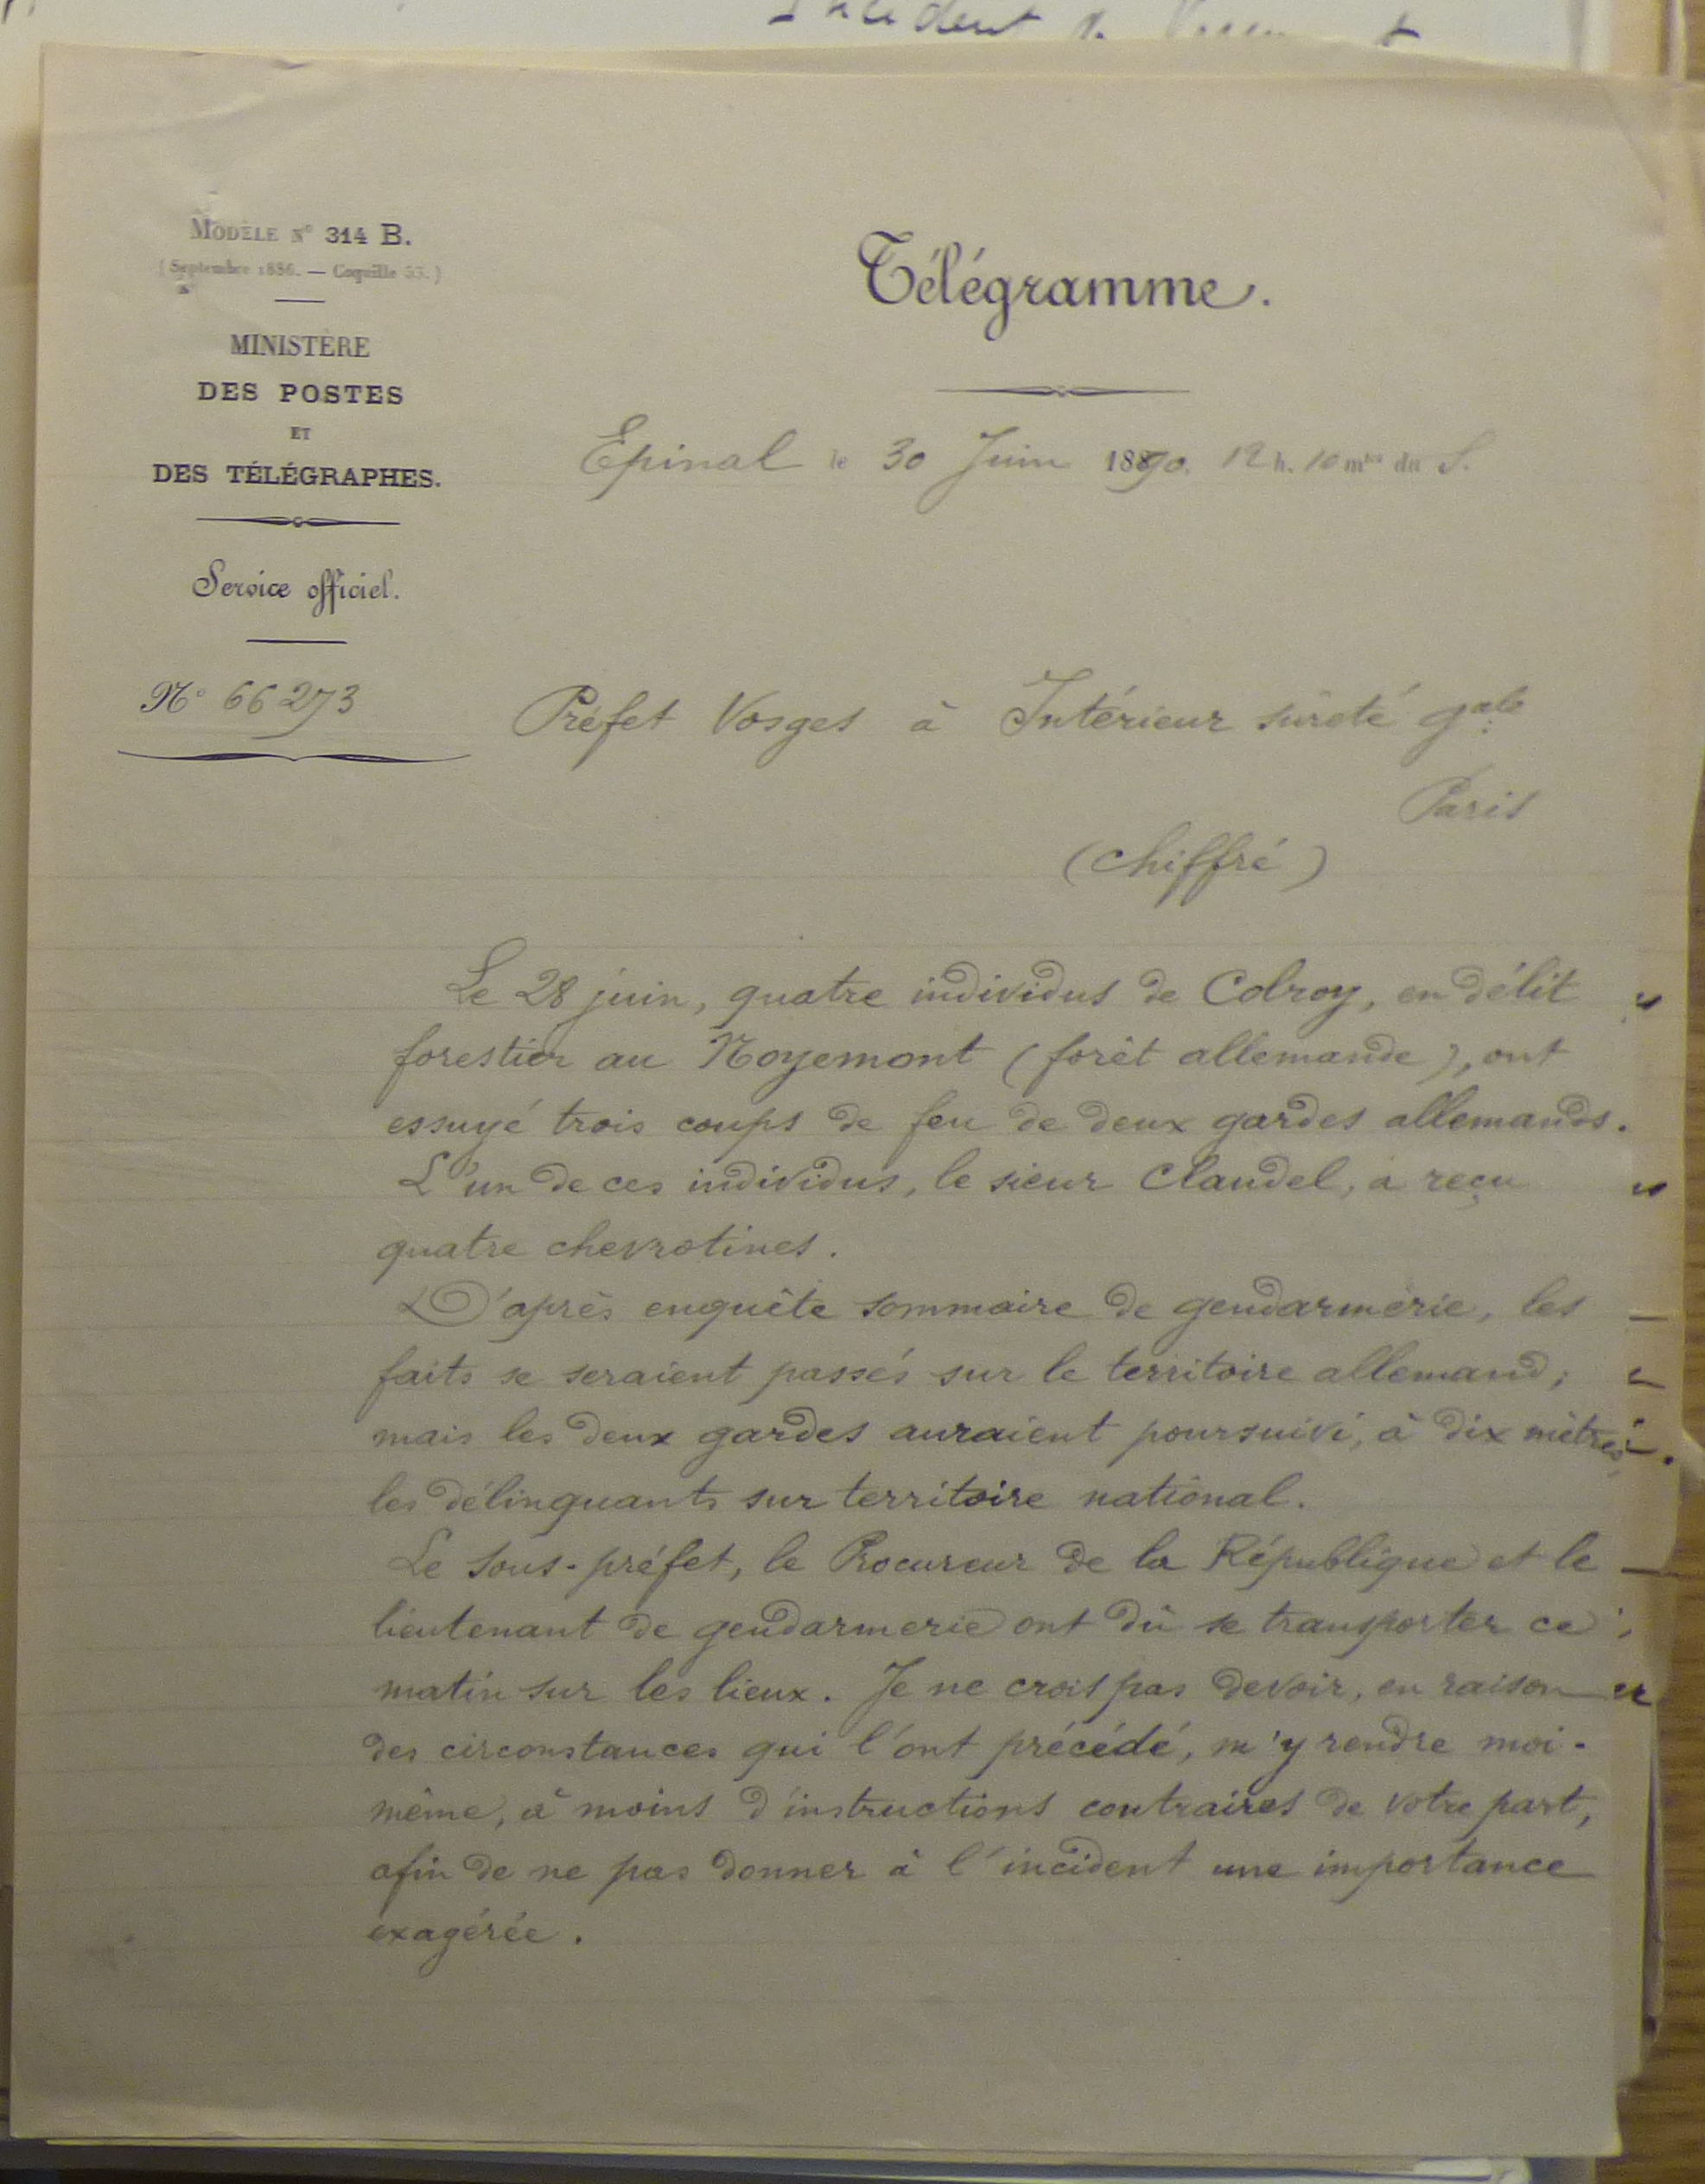 Incident de
MODÈLE N° 314 B.
(Septembre 1886. — Coquille 33.)
MINISTÈRE
DES POSTES
ET
DES TÉLÉGRAPHES.
Service officiel.
N° 66273
Télégramme.
Epinal le 30 Juin 1890. 12 h. 10 mtes du S.
Préfet Vosges à Intérieur sûreté gale
Paris
(chiffré)
Le 28 juin, quatre individus de Colroy, en délit
forestier au Noyemont (forêt allemande), ont
essuyé trois coups de feu de deux gardes allemands.
L'un de ces individus, le sieur Claudel, a reçu
quatre chevrotines.
D'après enquête sommaire de gendarmerie, les
faits se seraient passés sur le territoire allemand;
mais les deux gardes auraient poursuivi, à dix mètres,
les délinquants sur territoire national.
Le Sous-préfet, le Procureur de la République et le
lieutenant de gendarmerie ont dû se transporter ce
matin sur les lieux. Je ne crois pas devoir, en raison
des circonstances qui l'ont précédé, m'y rendre moi-
même, à moins d'instructions contraires de votre part,
afin de ne pas donner à l'incident une importance
exagérée.